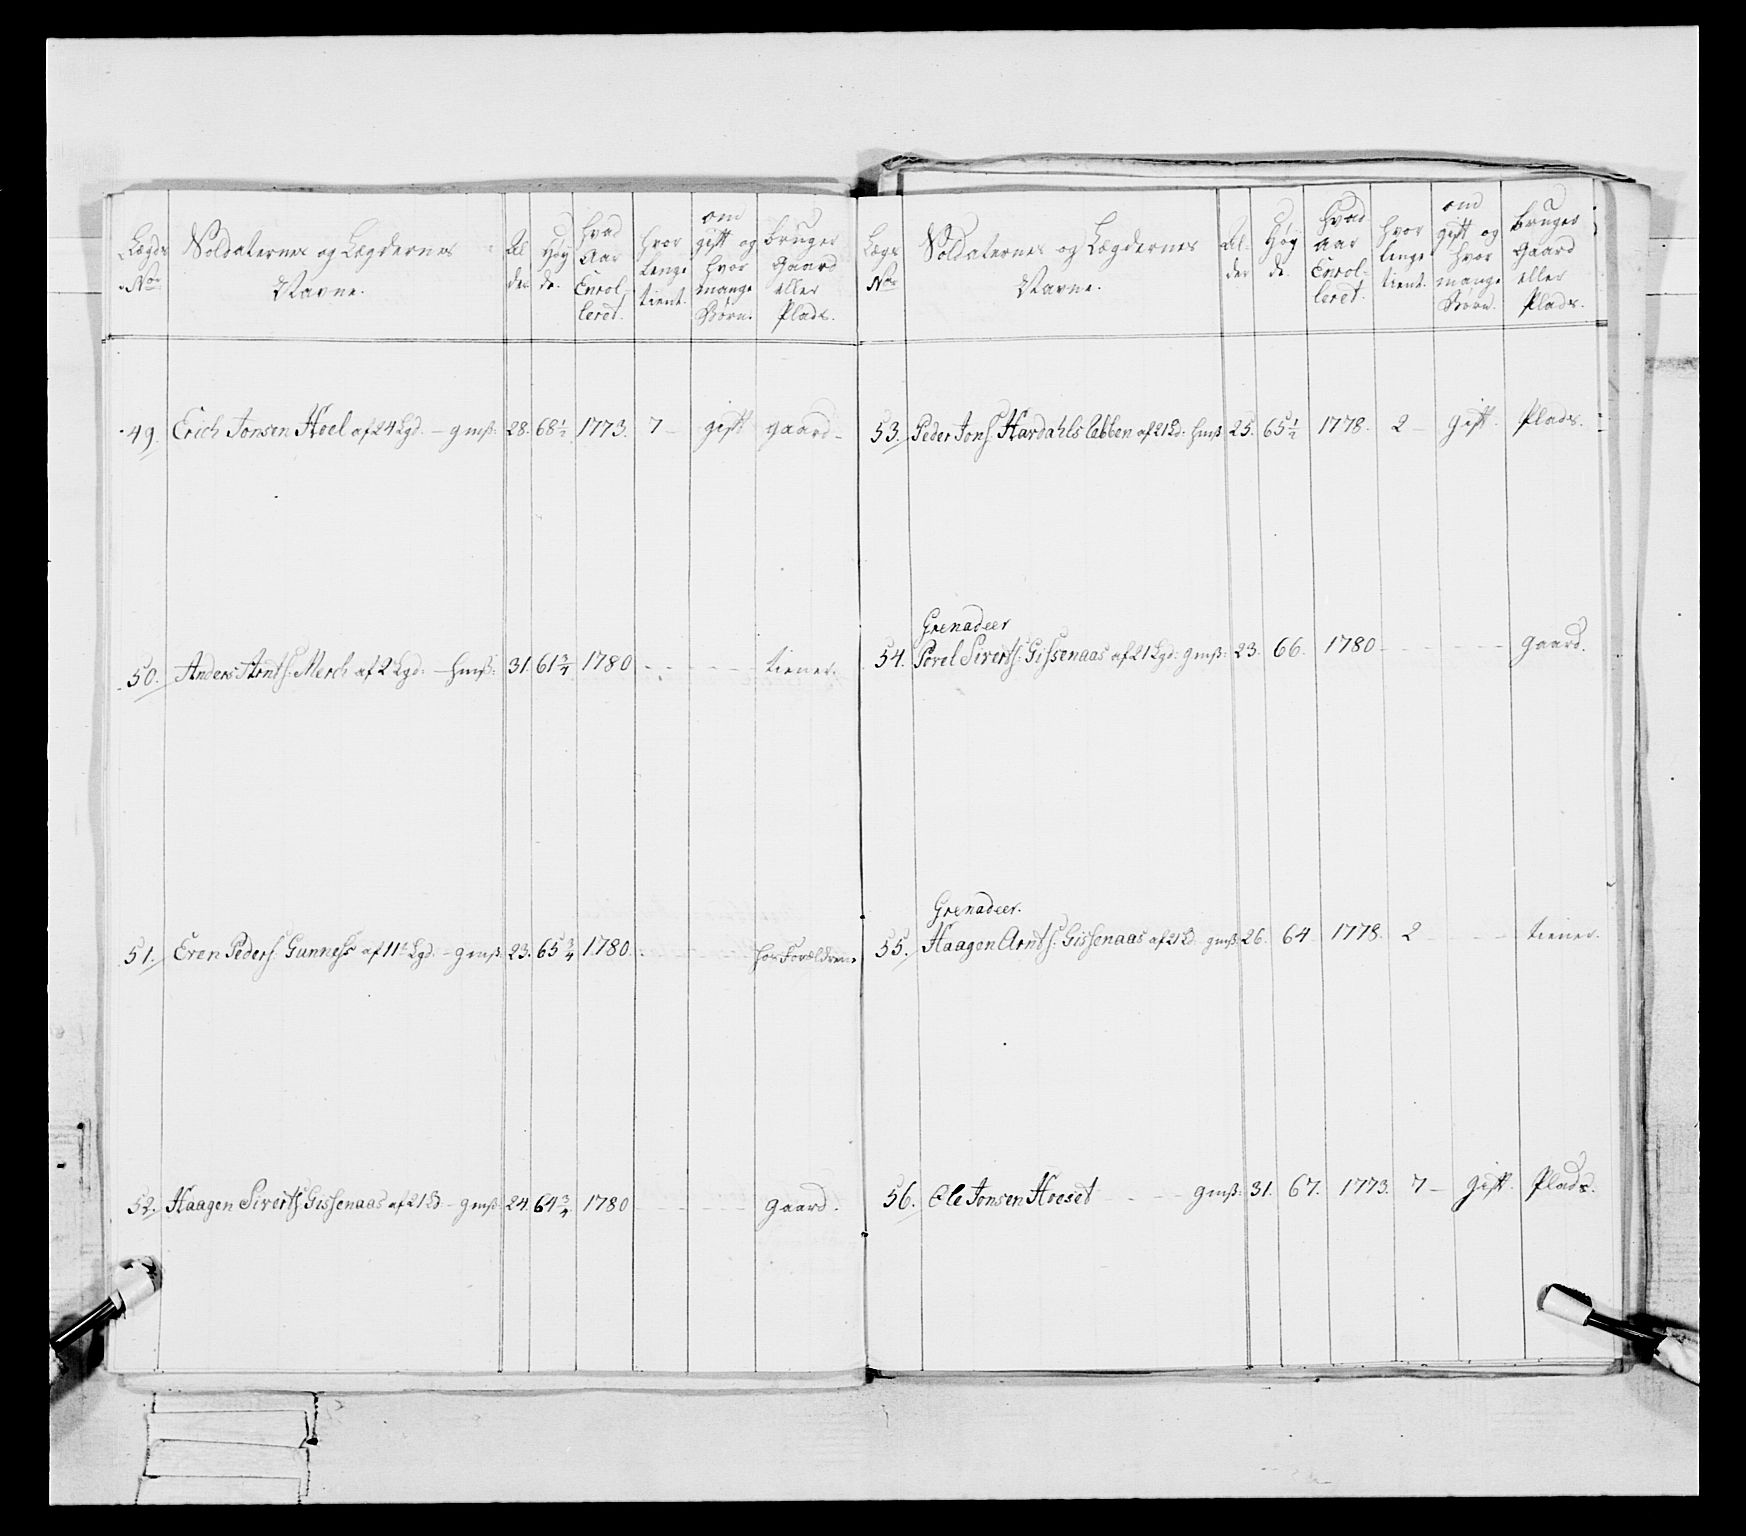 Lægds No.
Soldaternes og Lægdernes Navne.
Alder
Høyde.
hvad Aar Enrolleret.
hvor lenge tient.
om gift og hvor mange Børn.
bruger Gaard eller Plads.
49. Erich Jonsen Hoel af 24 Lgd. - gmß: 28. 68½ 1773. 7 - gift gaard -
50. Anders Arntß: Merch af 2 Lgd: - hmß: 31. 61¾ 1780 - - - - tiener.
51. Even Peders. Gunness af 11te Lgd. - gmß. 23. 65¾ 1780. - - - - hos Forældrene
52. Haagen Sivertß: Gissenaas af 21 Ld. - gmß. 24. 64¾ 1780 - - - - gaard.
Lægs No.
Soldaternes og Lægdernes Navne.
Alder
Høyde.
hvad Aar Enrolleret.
hvor lenge tient.
om gift og hvor mange Børn.
bruger Gaard eller Plads.
53. Peder Jonß. Hardahls af 21 Ld: hmß 25. 65½ 1778. 2 - gift. Plads.
Grenadeer
54. Povel Sivertß: Gissenaas af 21 Lgd: gmß: 23. 66. 1780 - - - - gaard.
Grenadeer.
55. Haagen Arntß: Gissenaas af 21 Ld. gmß: 26. 64. 1778. 2 - - - tiener.
56. Ole Jonsen Hoeset - - - gmß: 31. 67. 1773. 7 - gift. Plads.